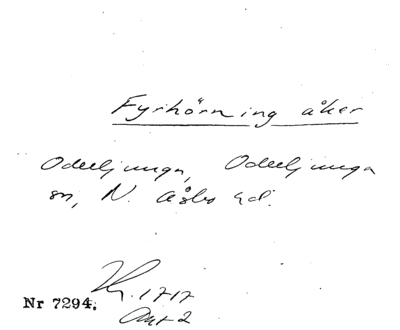 Fyrhörning åker
Oderljunga, Oderljunga
sn, N. Åsbo hd.
1717
Nr 7294.
Akt 2